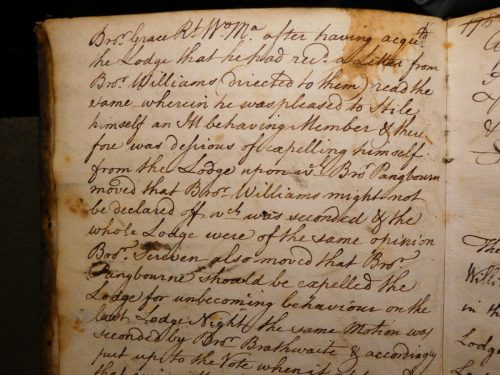 Bror. Grace Rt. Wo. Ma. after having acqutd.
the Lodge that he had recd. a Letter from
Bror. Williams directed to them, read the
same wherein he was pleased to Stile
himself an Ill behaving Member & there
fore was desirous of expelling himself
from the Lodge upon wch. Bro Pangbourn
moved that Bror. Williams might not
be declared off wch was seconded & the
whole Lodge were of the same opinion
Bror. Scriven also moved that Bror.
Pangbourne should be expelled the
Lodge for unbecoming behaviour on the
last Lodge Night, the same Motion was
seconded by Bror. Brathwaite & accordingly
put up to the Vote when it
175
The
Willi
in th
Lodge